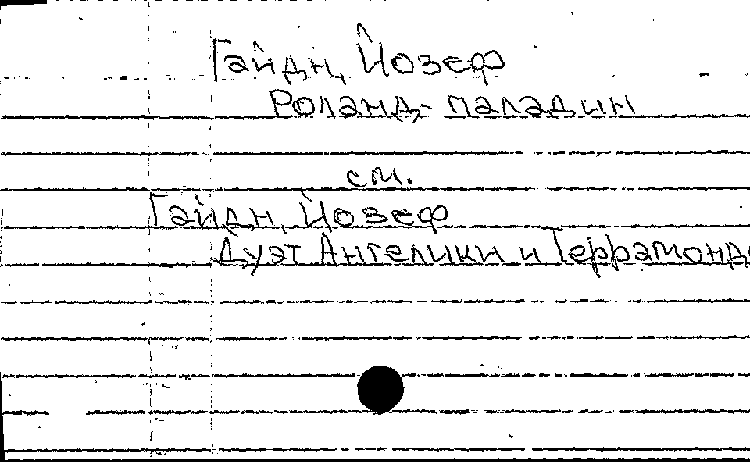 Гайдн, Йозеф
Роланд-паладин
см.
Гайдн, Йозеф
Дуэт Ангелики и Террамондо